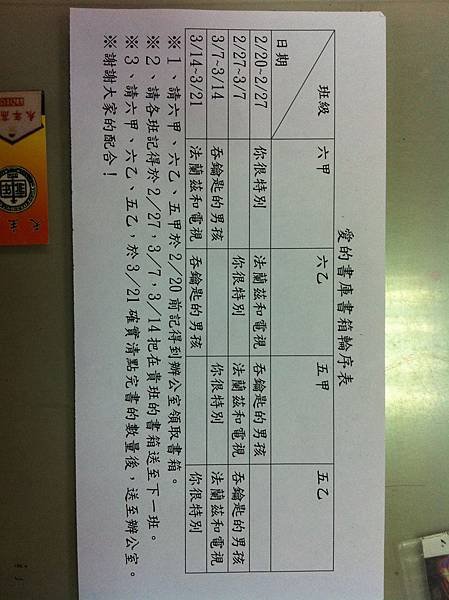 愛的書庫書箱輪序表
班級 六甲 六乙 五甲 五乙
日期
2/20~2/27 你很特別 法蘭茲和電視 吞鑰匙的男孩
2/27~3/7 你很特別 法蘭茲和電視 吞鑰匙的男孩
3/7~3/14 吞鑰匙的男孩 你很特別 法蘭茲和電視
3/14~3/21 法蘭茲和電視 吞鑰匙的男孩 你很特別
※1、請六甲、六乙、五甲於2/20前記得到辦公室領取書箱。
※2、請各班記得於2/27,3/7,3/14把在貴班的書箱送至下一班。
※3、請六甲、六乙、五乙,於3/21確實清點完書的數量後,送至辦公室。
※謝謝大家的配合!